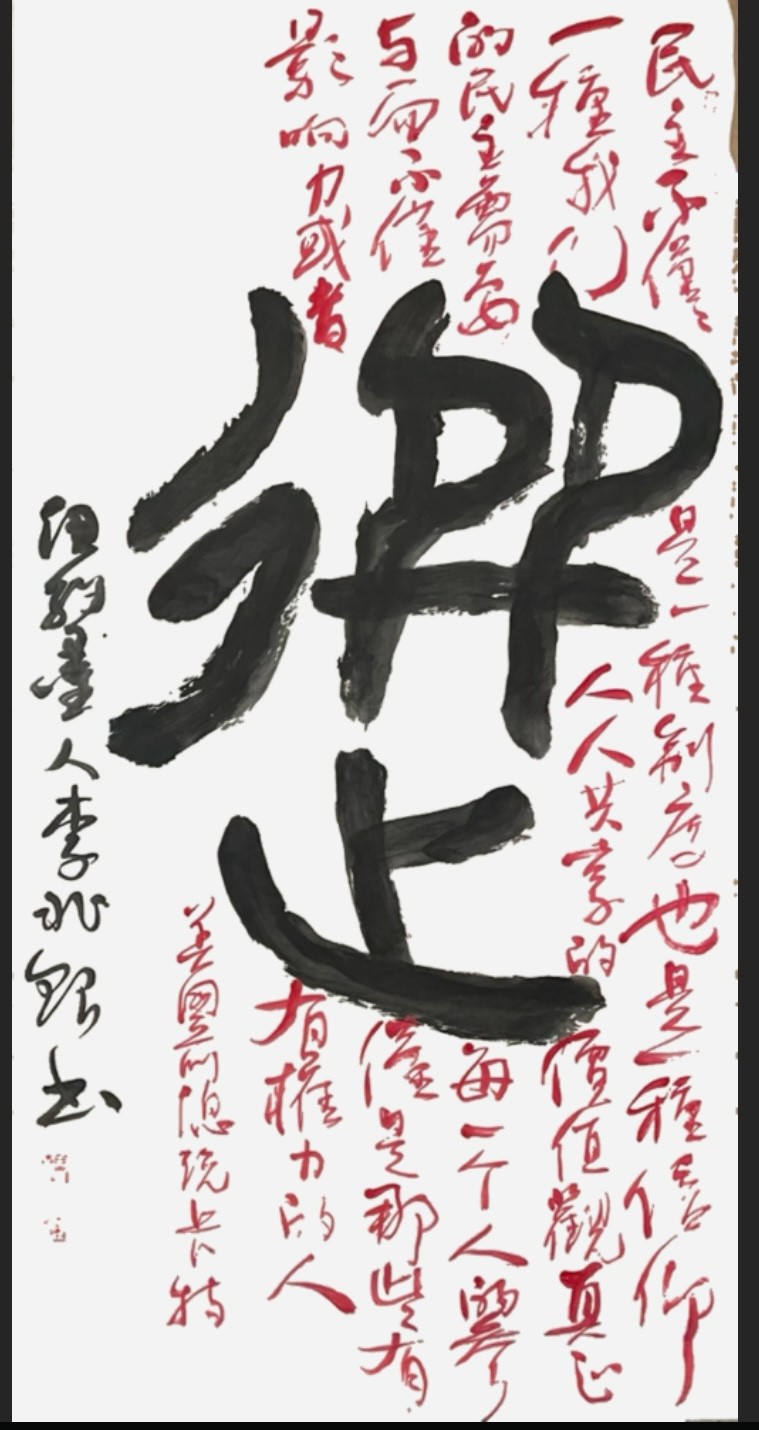 民主不僅僅是一種制度也是一種信仰
一種我們人人共享的價值觀真正
的民主需要每一个人的參
与而不僅僅是那些有
影响力或者有權力的人
美國前總統卡特
纽約墨人李兆銀书